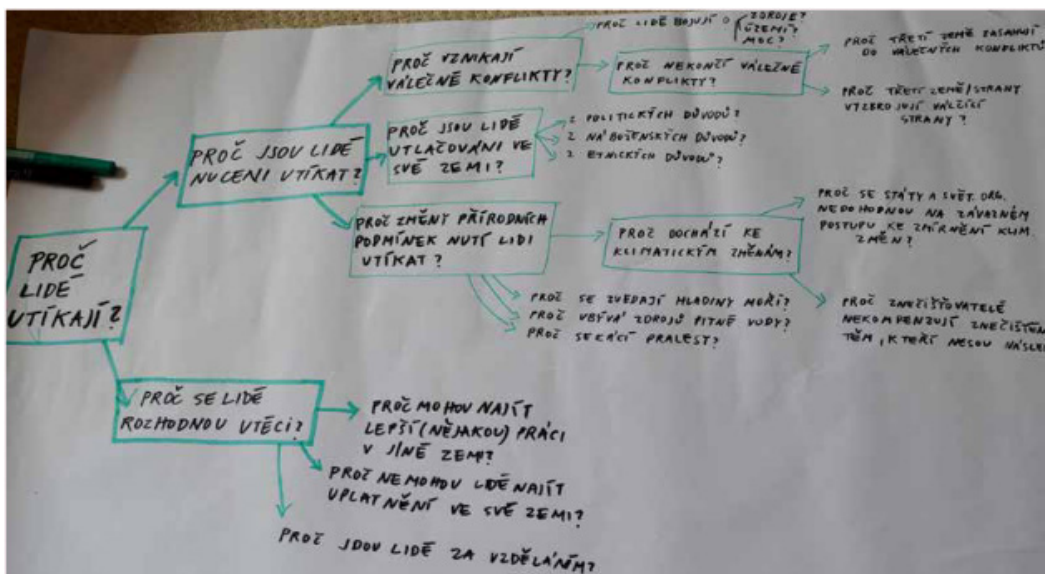 PROČ
LIDÉ
UTÍKAJÍ?
PROČ JSOU LIDÉ
NUCENI UTÍKAT?
PROČ VZNIKAJÍ
VÁLEČNÉ KONFLIKTY?
PROČ LIDÉ BOJUJÍ O
ZDROJE?
ÚZEMÍ?
MOC?
PROČ NEKONČÍ VÁLEČNÉ
KONFLIKTY?
PROČ TŘETÍ ZEMĚ ZASAHUJÍ
DO VÁLEČNÝCH KONFLIKTŮ
PROČ TŘETÍ ZEMĚ/STRANY
VYZBROJUJÍ VÁLČÍCÍ
STRANY?
PROČ JSOU LIDÉ
UTLAČOVÁNI VE
SVÉ ZEMI?
Z POLITICKÝCH DŮVODŮ?
Z NÁBOŽENSKÝCH DŮVODŮ?
Z ETNICKÝCH DŮVODŮ?
PROČ ZMĚNY PŘÍRODNÍCH
PODMÍNEK NUTÍ LIDI
UTÍKAT?
PROČ DOCHÁZÍ KE
KLIMATICKÝM ZMĚNÁM?
PROČ SE STÁTY A SVĚT. ORG.
NEDOHODNOU NA ZÁVAZNÉM
POSTUPU KE ZMÍRNĚNÍ KLIM.
ZMĚN?
PROČ ZNEČIŠŤOVATELÉ
NEKOMPENZUJÍ ZNEČIŠTĚN
TĚM, KTEŘÍ NESOU NÁSLE
PROČ SE ZVEDAJÍ HLADINY MOŘÍ?
PROČ UBÝVÁ ZDROJŮ PITNÉ VODY?
PROČ SE KÁCÍ PRALESY?
PROČ SE LIDÉ
ROZHODNOU UTÉCI?
PROČ MOHOU NAJÍT
LEPŠÍ (NĚJAKOU) PRÁCI
V JINÉ ZEMI?
PROČ NEMOHOU LIDÉ NAJÍT
UPLATNĚNÍ VE SVÉ ZEMI?
PROČ JDOU LIDÉ ZA VZDĚLÁNÍM?